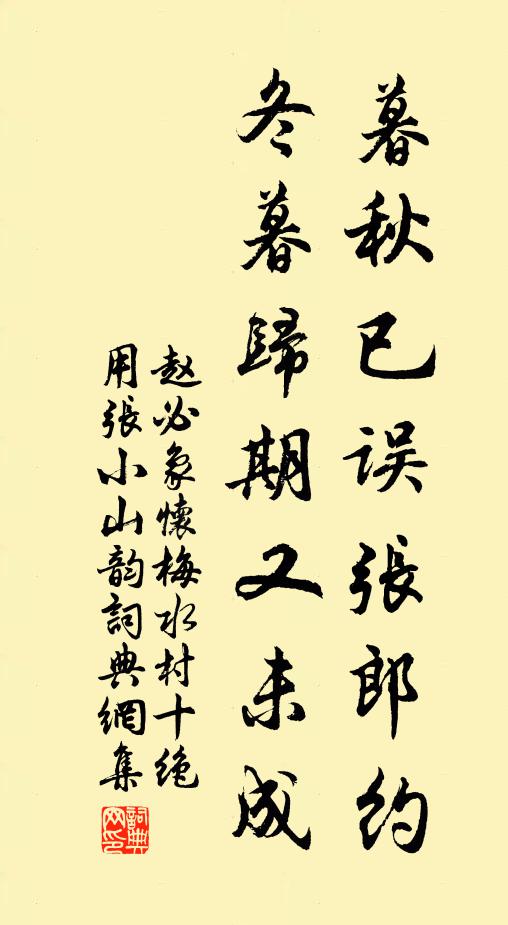 暮秋已误張郎约
冬暮歸期又未成
赵必象懷梅水村十绝
用張小山韵詞典網集
詞典
网印